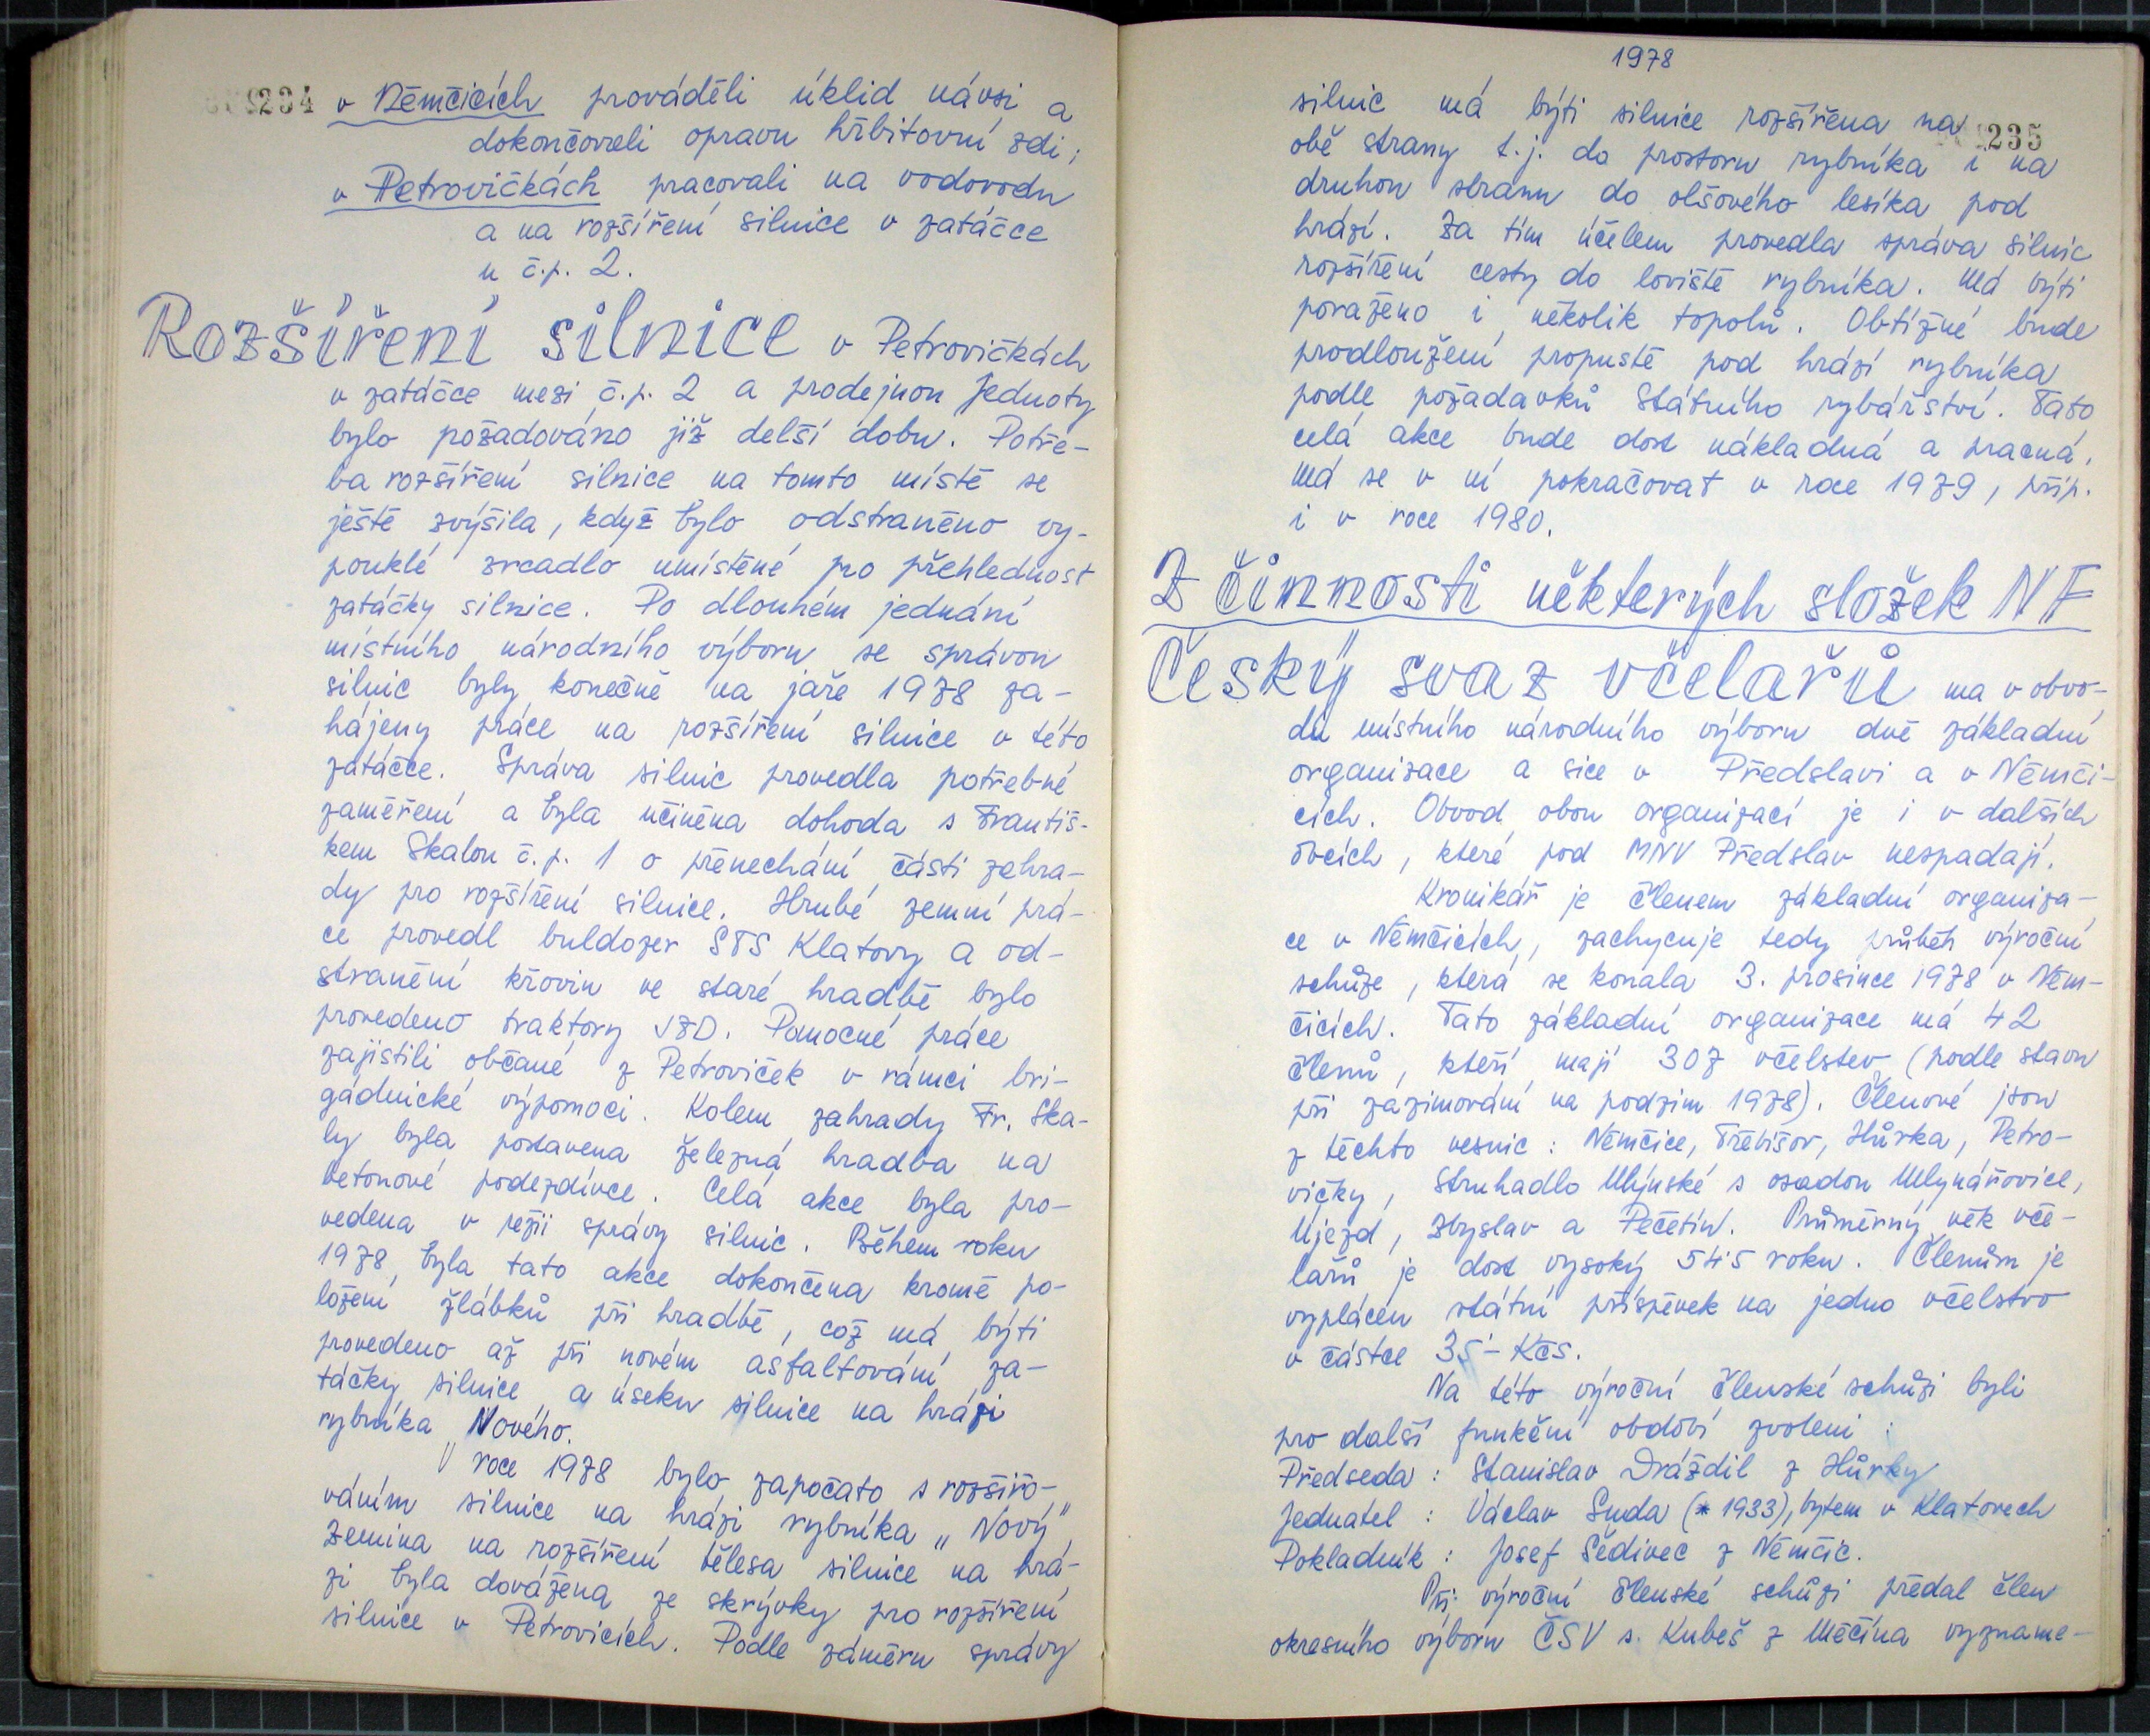 234
v Němčicích prováděli úklid návsi a
dokončovali opravu hřbitovní zdi;
v Petrovičkách pracovali na vodovodu
a na rozšíření silnice v zatáčce
u č.p. 2.
Rozšíření silnice v Petrovičkách
v zatáčce mezi č.p. 2 a prodejnou Jednoty
bylo požadováno již delší dobu. Potře-
ba rozšíření silnice na tomto místě se
ještě zvýšila, když bylo odstraněno vy-
pouklé zrcadlo umístěné pro přehlednost
zatáčky silnice. Po dlouhém jednání
místního národního výboru se správou
silnic byly konečně na jaře 1978 za-
hájeny práce na rozšíření silnice v této
zatáčce. Správa silnic provedla potřebné
zaměření a byla učiněna dohoda s Františ-
kem Skalou č.p. 1 o přenechání části zahra-
dy pro rozšíření silnice. Hrubé zemní prá-
ce provedl buldozer STS Klatovy a od-
stranění křovin ve staré hradbě bylo
provedeno traktory JZD. Pomocné práce
zajistili občané z Petroviček v rámci bri-
gádnické výpomoci. Kolem zahrady Fr. Ska-
ly byla postavena železná hradba na
betonové podezdívce. Celá akce byla pro-
vedena v režii správy silnic. Během roku
1978 byla tato akce dokončena kromě po-
ložení žlábků při hradbě, což má býti
provedeno až při novém asfaltování za-
táčky silnice a úseku silnice na hrázi
rybníka Nového.
V roce 1978 bylo započato s rozšiřo-
váním silnice na hrázi rybníka „Nový"
Zemina na rozšíření tělesa silnice na hrá-
zi byla dovážena ze skrývky pro rozšíření
silnice v Petrovicích. Podle záměru správy
1978
235
silnic má býti silnice rozšířena na
obě strany t.j. do prostoru rybníka i na
druhou stranu do olšového lesíka pod
hrází. Za tím účelem provedla správa silnic
rozšíření cesty do loviště rybníka. Má býti
poraženo i několik topolů. Obtížné bude
prodloužení propustě pod hrází rybníka
podle požadavků Státního rybářství. Tato
celá akce bude dost nákladná a pracná.
Má se v ní pokračovat v roce 1979, příp.
i v roce 1980.
Z činnosti některých složek NF
Český svaz včelařů ma v obvo-
du místního národního výboru dvě základní
organizace a sice v Předslavi a v Němči-
cích. Obvod obou organizací je i v dalších
obcích, které pod MNV Předslav nespadají.
Kronikář je členem základní organiza-
ce v Němčicích, zachycuje tedy průběh výroční
schůze, která se konala 3. prosince 1978 v Něm-
čicích. Tato základní organizace má 42
členů, kteří mají 307 včelstev (podle stavu
při zazimování na podzim 1978). Členové jsou
z těchto vesnic: Němčice, Třebíšov, Hůrka, Petro-
vičky, Struhadlo Mlýnské s osadou Mlynářovice,
Újezd, Zbyslav a Pečetín. Průměrný věk vče-
lařů je dost vysoký 54'5 roku. Členům je
vyplácen státní příspěvek na jedno včelstvo
v částce 35'- Kčs.
Na této výroční členské schůzi byli
pro další funkční období zvoleni:
Předseda: Stanislav Dráždil z Hůrky
Jednatel: Václav Suda (* 1933), bytem v Klatovech
Pokladník: Josef Šedivec z Němčic.
Při výroční členské schůzi předal člen
okresního výboru ČSV s. Kubeš z Měčína vyzname-